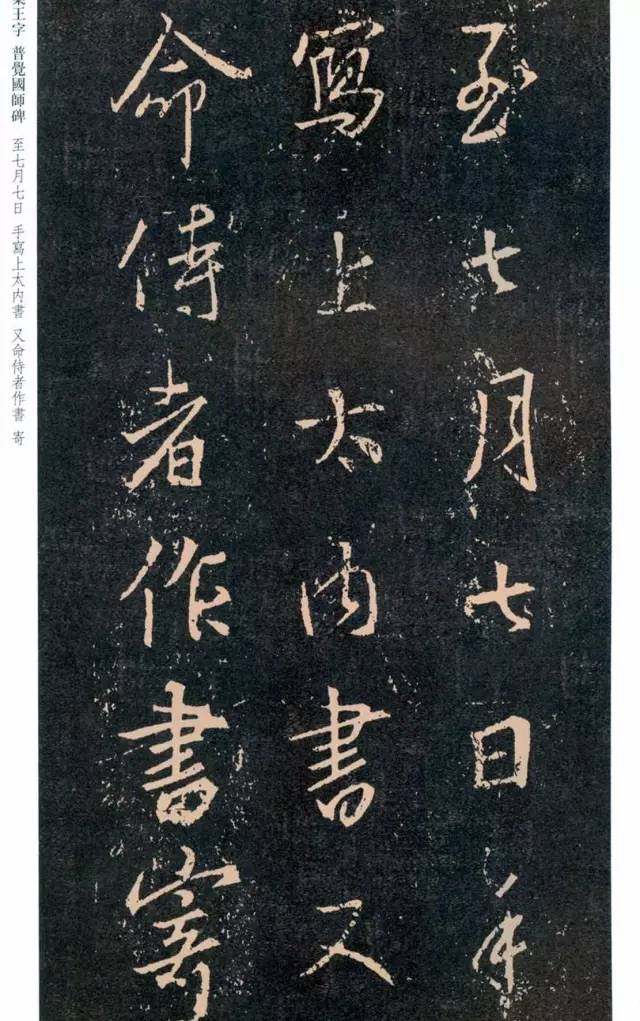 至七月七日手
寫上太内書又
命侍者作書寄
集王字 普覺國師碑 至七月七日 手寫上太内書 又命侍者作書 寄